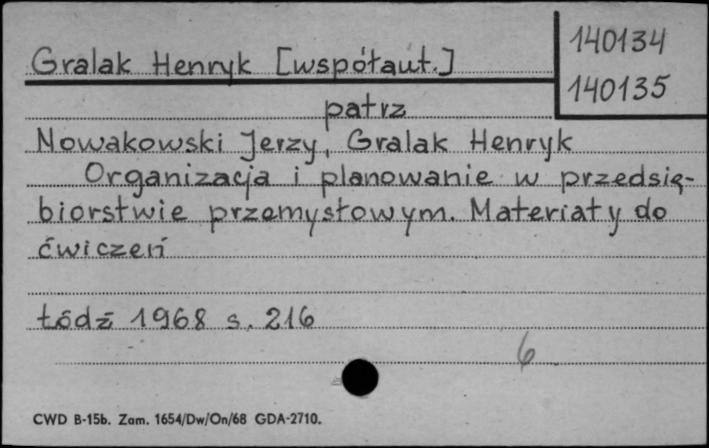 Gralak Henryk [współaut.]
140134
140135
patrz
Nowakowski Jerzy, Gralak Henryk
Organizacja i planowanie w przedsię-
biorstwie przemysłowym. Materiały do
ćwiczeń
Łódź 1968 s. 216
6
CWD B-15b. Zam. 1654/Dw/On/68 GDA-2710.